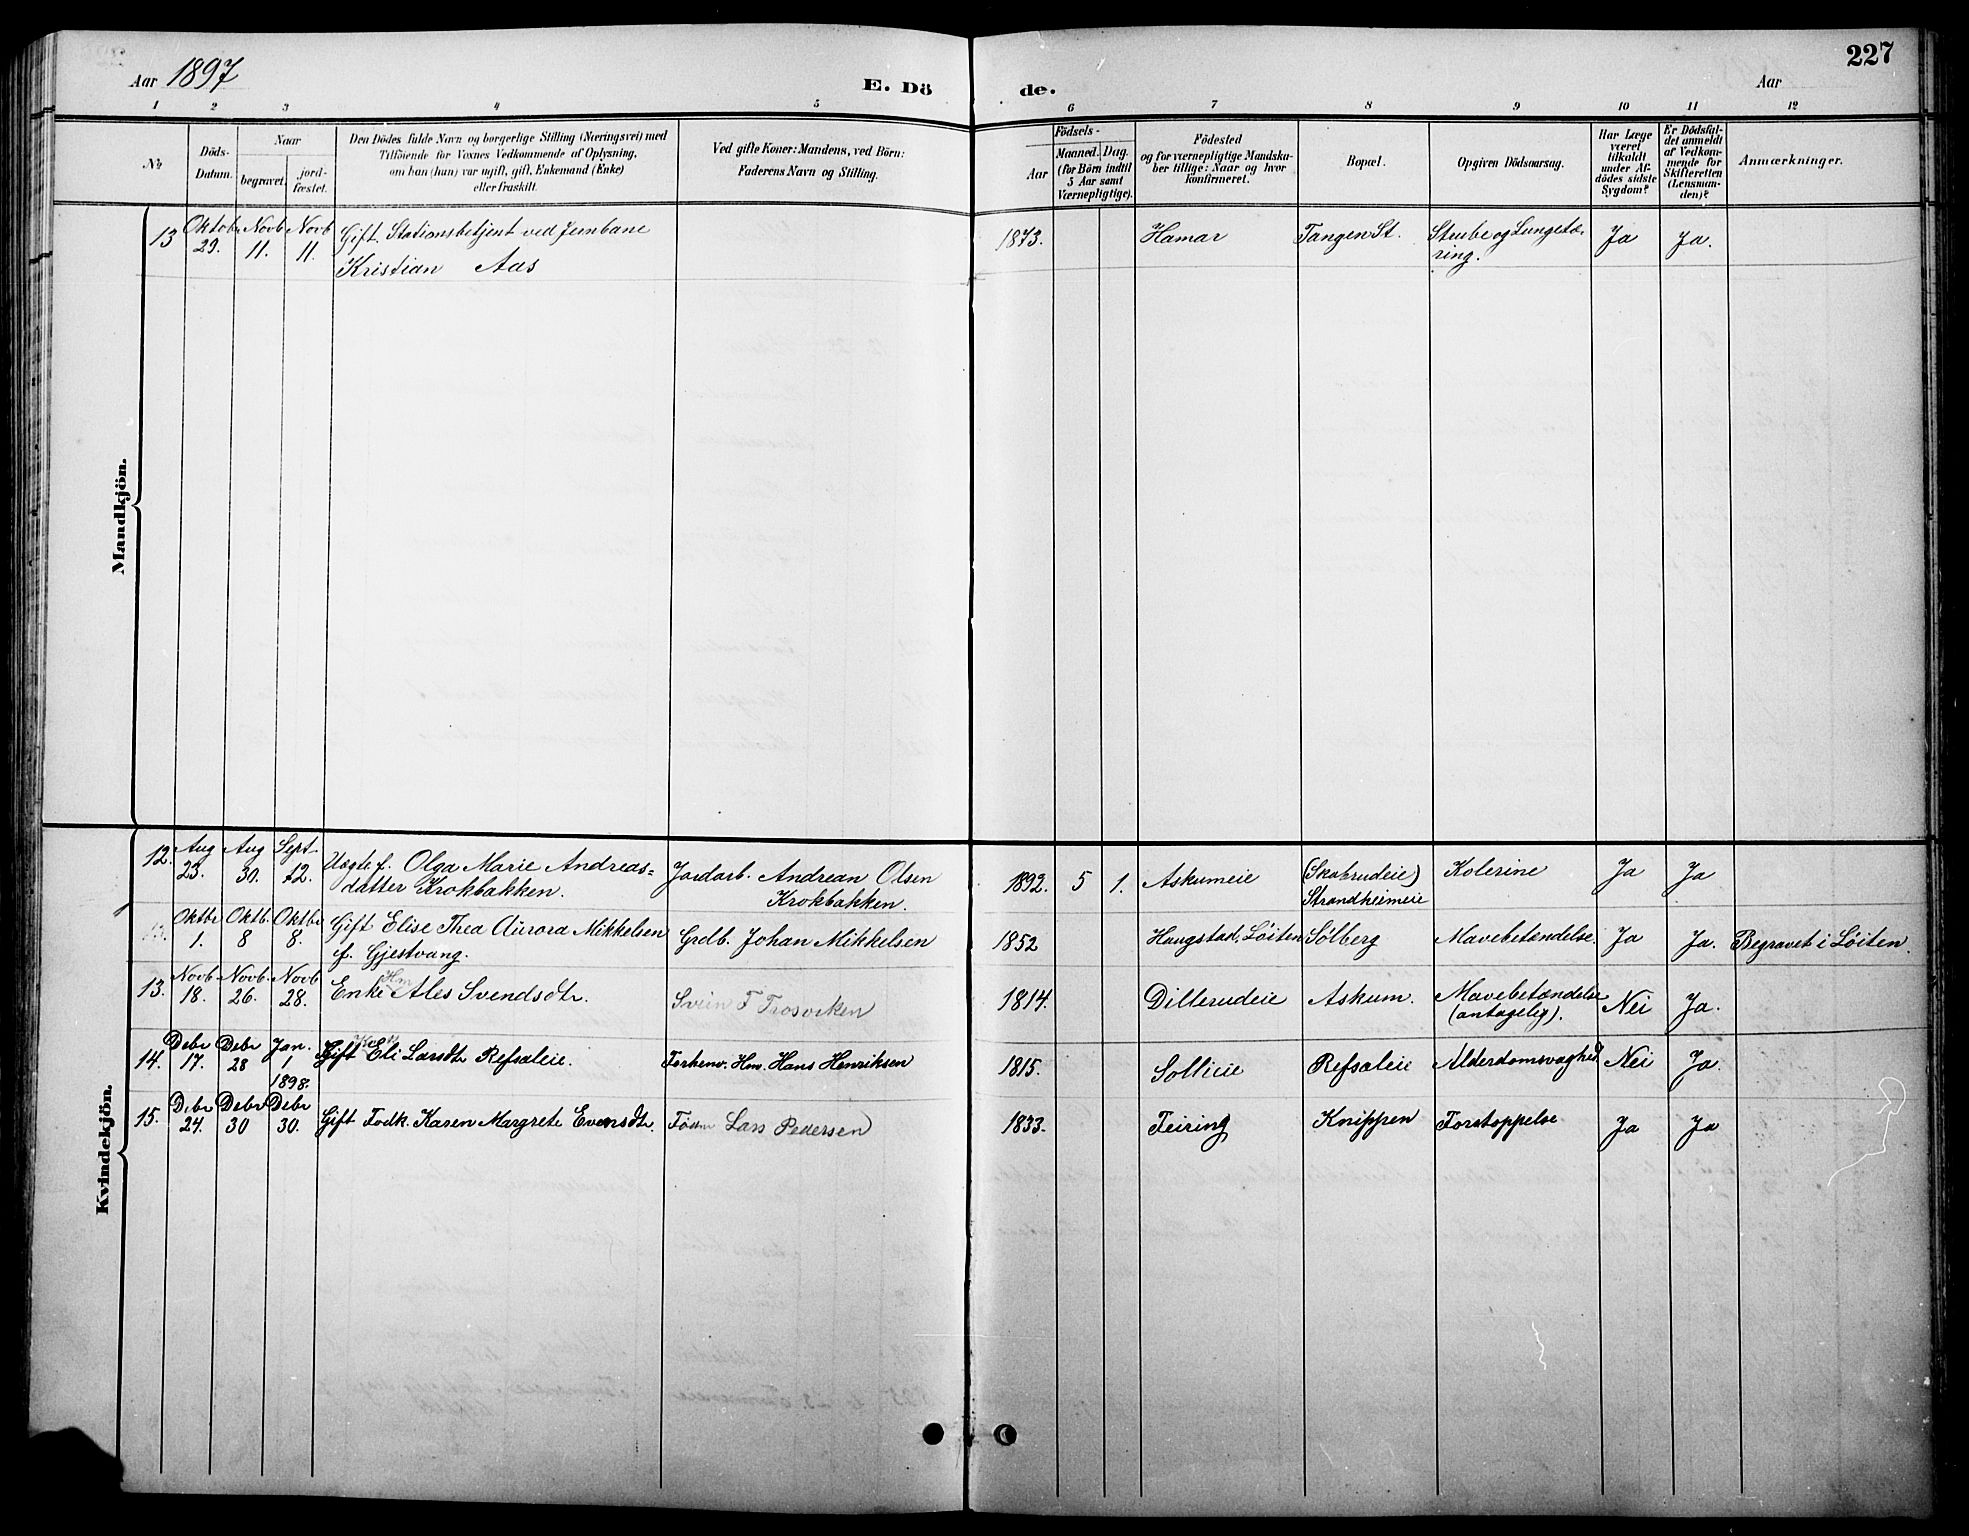 Aar 1897
E. Dö
de.
Aar
227
1 2 3 4 5 6 7 8 9 10 11 12
№
Döds-
Datum.
Naar
begravet.
jord-
fæstet.
Den Dödes fulde Navn og borgerlige Stilling (Næringsvei) med
Tilföiende for Voxnes Vedkommende af Oplysning,
om han (hun) var ugift, gift, Enkemand (Enke)
eller fraskilt.
Ved gifte Koner: Mandens, ved Börn:
Faderens Navn og Stilling.
Födsels-
Aar
Maaned. Dag.
(for Börn indtil
5 Aar samt
Værnepligtige).
Födested
og for værnepligtige Mandska-
ber tillige: Naar og hvor
konfirmeret.
Bopæl.
Opgiven Dödsaarsag.
Har Læge
været
tilkaldt
under Af-
dödes sidste
Sygdom?
Er Dödsfal-
det anmeldt
af Vedkom-
mende for
Skifteretten
(Lensman-
den)?
Anmærkninger.
Mandkjön.
13 Oktob. 29. Novb 11. Novb 11. Gift. Stationsbetjent ved Jernbane
Kristian Aas
1873. Hamar Tangen St. Strube og Lungetæ-
ring. Ja Ja.
Kvindekjön.
12. Aug 23. Aug 30. Sept. 12. Uægte f. Olga Marie Andreas=
datter Krokbakken.
Jordarb. Andrean Olsen
Krokbakken.
1892. 5 1. Askumeie (Skabrudeie)
Strandheimeie Kolerine Ja Ja
Oktbr 1. Oktb. 8 Oktbr 8. Gift Elise Thea Aurora Mikkelsen
f. Gjestvang.
Grdb. Johan Mikkelsen
1852 Haugstad, Löiten Sólberg Mavebetændelse. Ja Ja. Begravet i Löiten.
13. Novb 18. Novb. 26. Novb 28. Enke Hm Ales Svendsdtr.
Svein F Trosviken
1814. Dillerudeie Askum. Mavebetændelse
(antagelig). Nei Ja.
14. Debr 17. Debr 28 Jan. 1
1898. Gift Eli Larsdtr Refsaleie.
Forhenv. Hm. Hans Henriksen
1815. Sollieie Refsaleie Alderdomsvaghed Nei Ja.
15. Debr 24. Debr 30 Debr 30. Gift Fodk. Karen Margrete Evensdtr.
Födm Lars Pedersen
1833. Feiring Knippen Forstoppelse Ja Ja